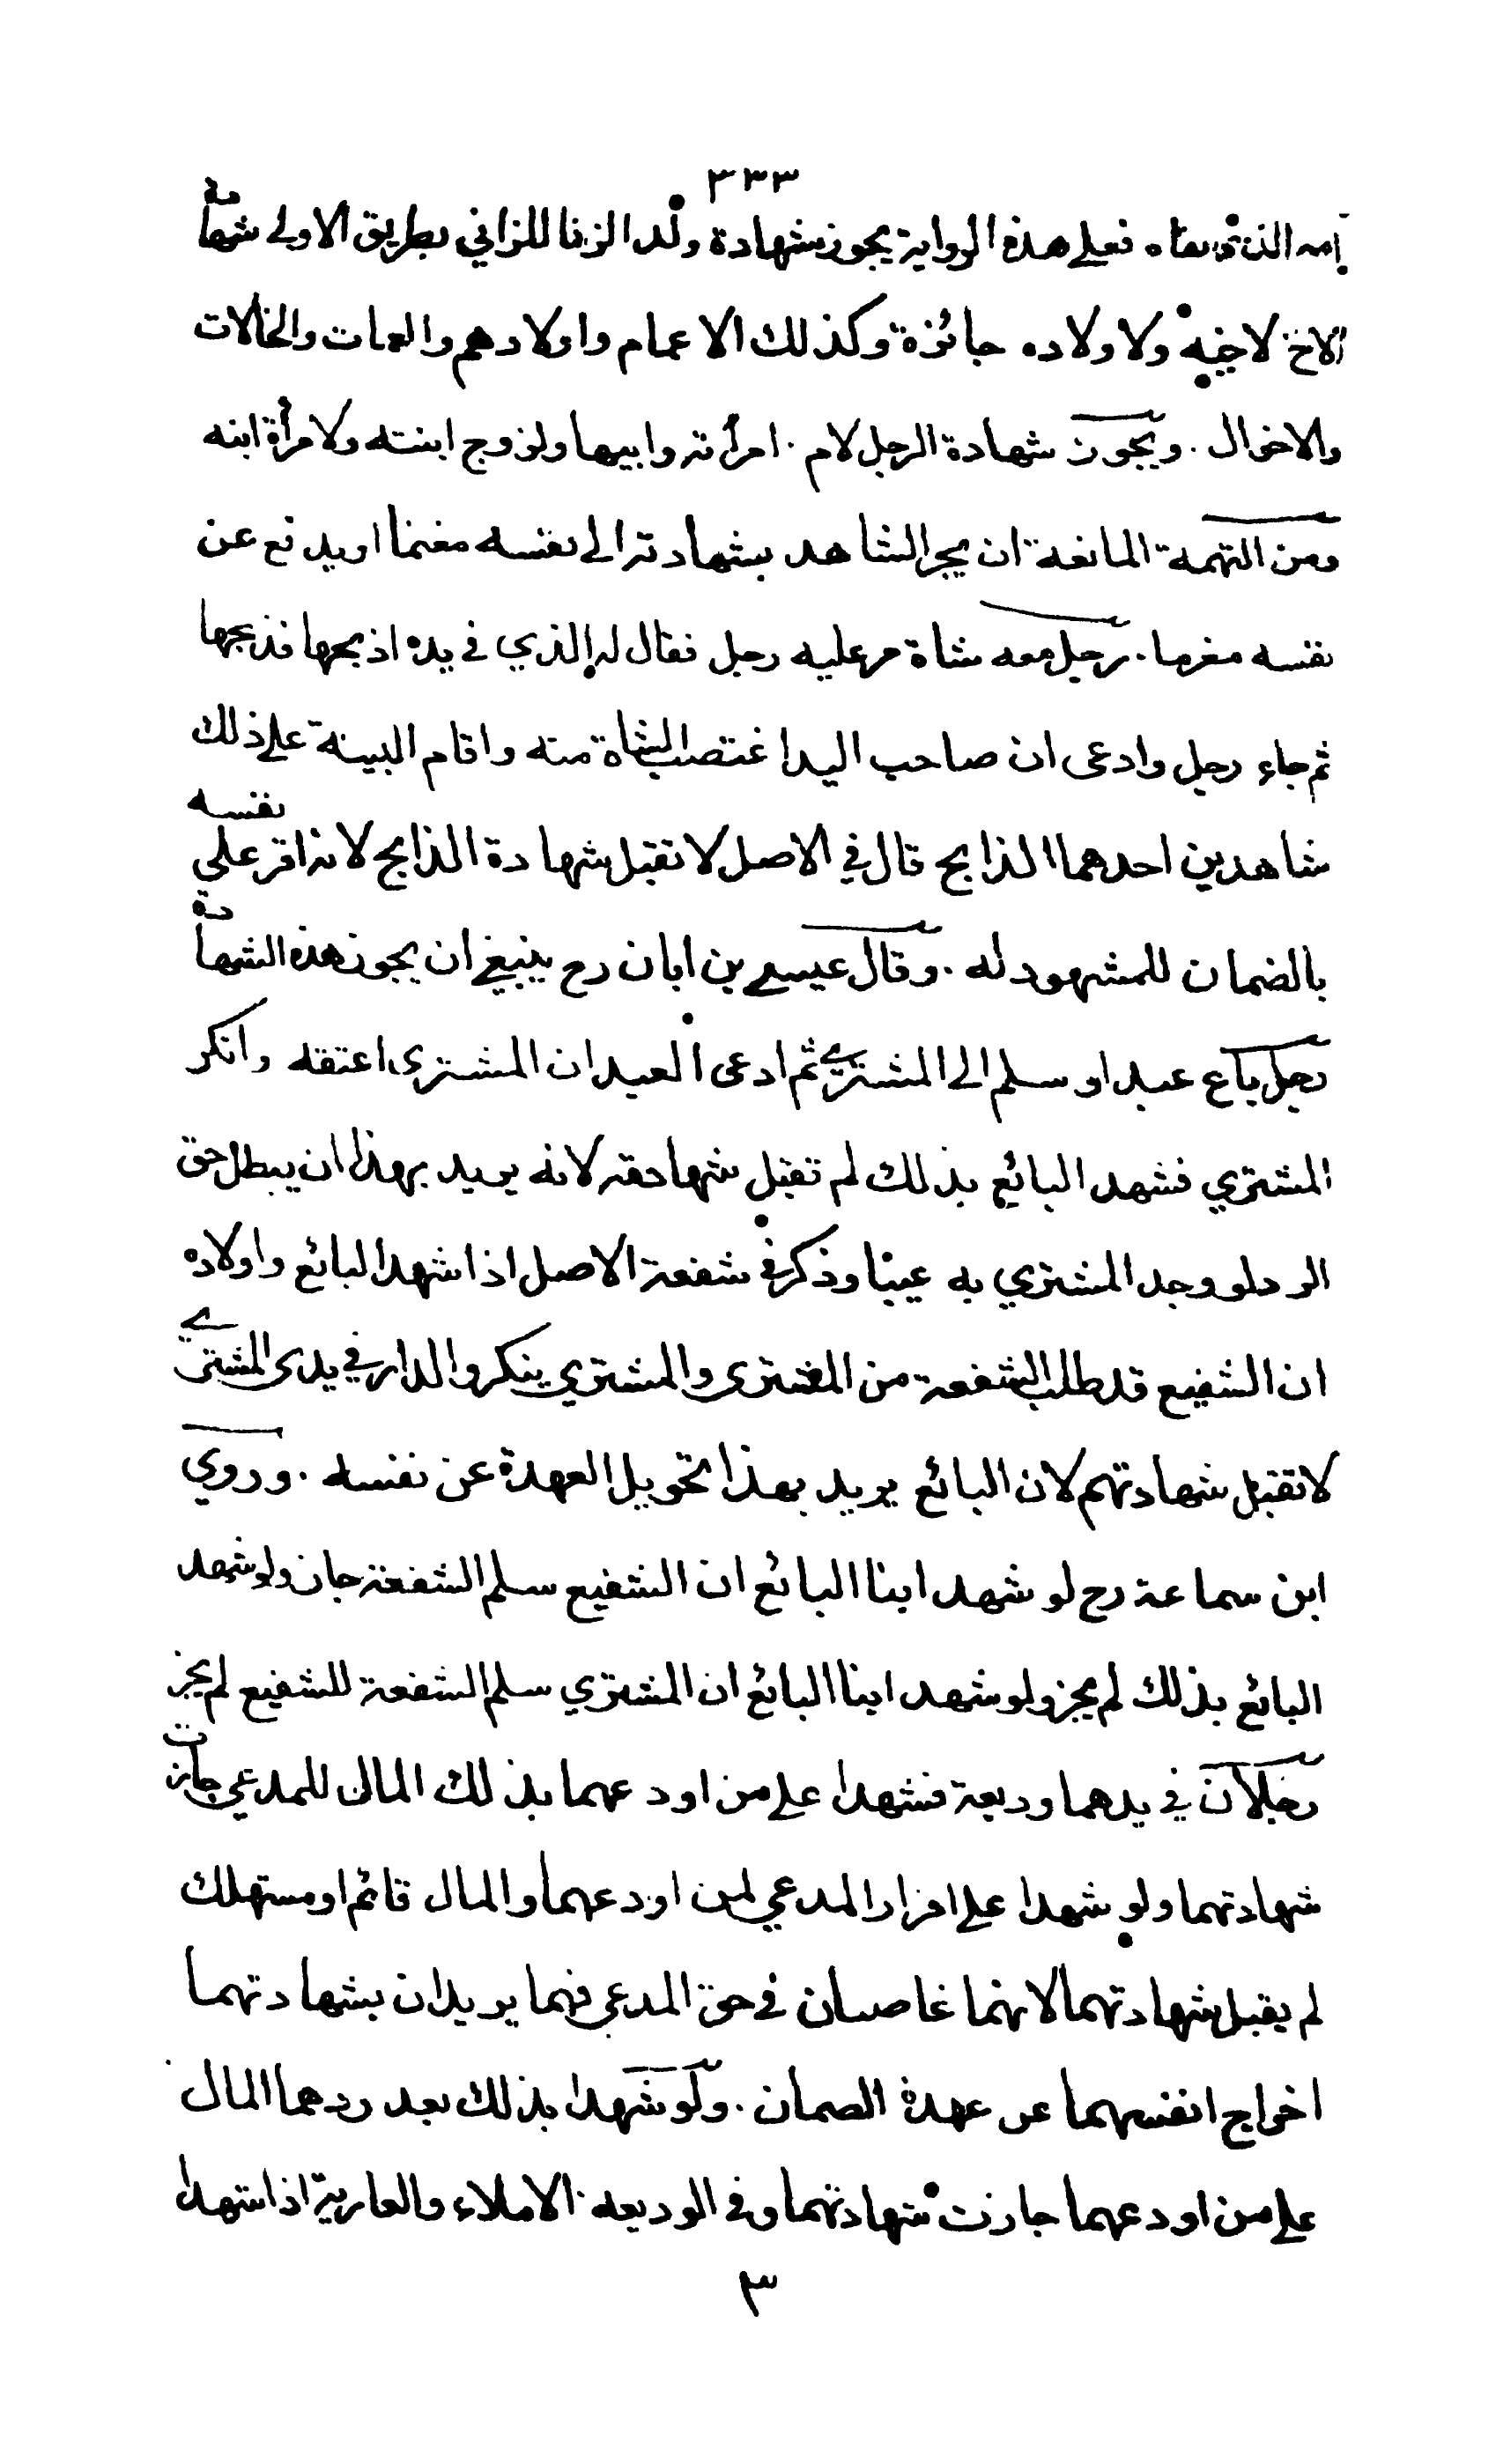 ٣٣٣
ابنه الذي نفاه فعلى هذه الرواية يجوز شهادة ولد الزنا للزاني بطريق الاولى شهادة
الاخ لاخيه ولاولاده جائزة وكذلك الاعمام واولادهم والعمات والخالات
والاخوال . ويجوز شهادة الرجل لام امرأته وابيها ولزوج ابنته ولامرأة ابنه
ومن التهمة المانعة ان يجر الشاهد بشهادته الى نفسه مغنما او يدفع عن
نفسه مغرما . رجل معه شاة مر عليه رجل فقال له الذي في يده اذبحها فذبحها
ثم جاء رجل وادعى ان صاحب اليد اغتصب الشاة منه واقام البينة على ذلك
شاهدين احدهما الذابح قال في الاصل لا تقبل شهادة الذابح لانه اقر على نفسه
بالضمان للمشهود له . وقال عيسى بن ابان رح ينبغي ان يجوز هذه الشهادة
رجل باع عبدا وسلم الى المشتري ثم ادعى العبد ان المشترى اعتقه وانكر
المشتري فشهد البائع بذلك لم تقبل شهادته لانه يريد بهذا ان يبطل حق
الرد لو وجد المشتري به عيبا وذكر في شفعة الاصل اذا شهد البائع واولاده
ان الشفيع قد طلب الشفعة من المشترى والمشتري ينكر والدار في يدى المشتري
لا تقبل شهادتهم لان البائع يريد بهذا تحويل العهدة عن نفسه . وروي
ابن سماعة رح لو شهد ابنا البائع ان الشفيع سلم الشفعة جاز ولو شهد
البائع بذلك لم يجز ولو شهد ابنا البائع ان المشتري سلم الشفعة للشفيع لم يجز
رجلان في يدهما وديعة فشهدا على من اودعهما بذلك المال للمدعي جازت
شهادتهما ولو شهدا على اقرار المدعي لمن اودعهما والمال قائم او مستهلك
لم يقبل شهادتهما لانهما غاصبان في حق المدعي فهما يريدان بشهادتهما
اخراج انفسهما عن عهدة الضمان . ولو شهدا بذلك بعد ردهما المال
على من اودعهما جازت شهادتهما وفي الوديعة الاملاء والعارية اذا شهدا
٣